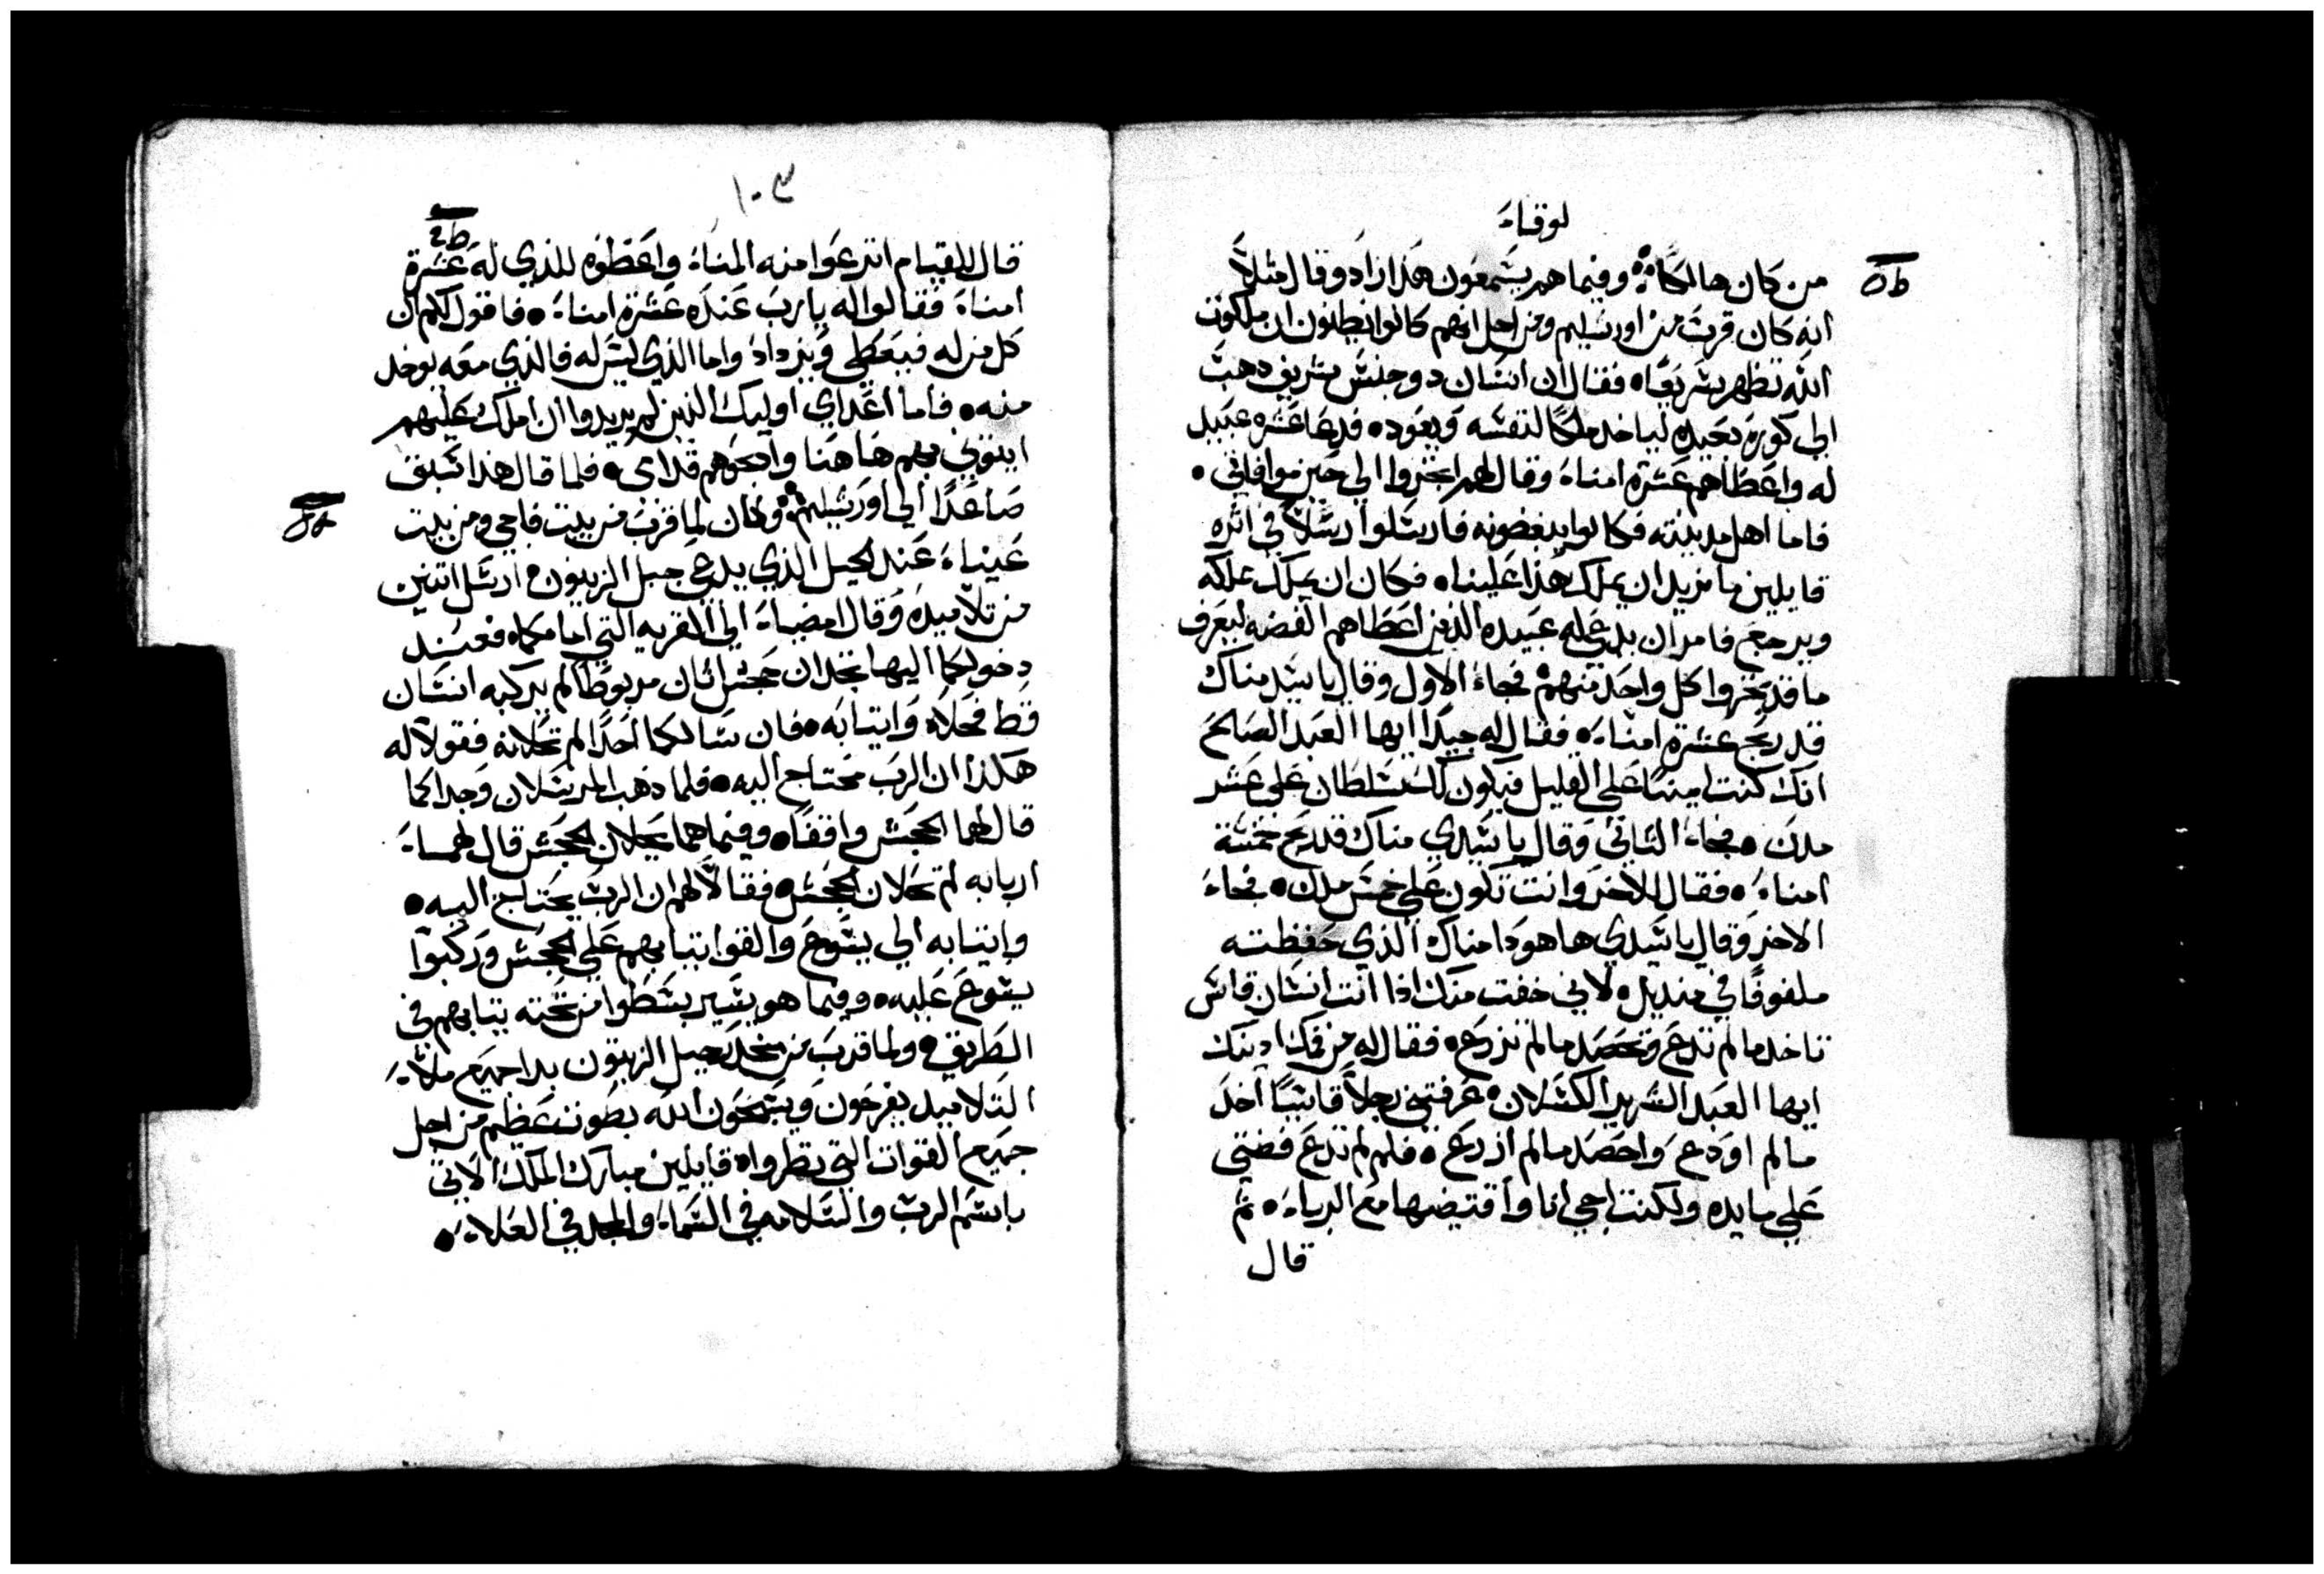 لوقاء
من كان هالكًا وفيما هم يسمعون هذا زاد وقال مثلاً
انه كان قرب من اورشليم ومن اجل انهم كانوا يظنون ان ملكوت
الله تظهر سريعًا فقال ان انسان دو جنس شريف دهب
الي كورة بعيده لياخد ملكًا لنفسه ويعود فدعا عشره عبيد
له واعطاهم عشرة امناء وقال لهم اتجروا الي حين موافاتي
فاما اهل مدينته فكانوا يبغضونه فارسلوا رسلاً في اثره
قايلين ما نريد ان يملك هذا علينا فكان ان يملك علكه
ويرجع فامر ان يدعي له عبيده الذين اعطاهم الفضه ليعرف
ما قد تجروا كل واحد منهم فجاء الاول وقال يا سيد مناك
قد ربح عشرة امناء فقال له جيدًا ايها العبد الصالح
انك كنت امينًا علي القليل فيكون لك سلطان علي عشر
مدن فجاء الثاني وقال يا سيدي مناك قد ربح خمسة
امناء فقال للاخر وانت تكون علي خمس مدن فجاء
الاخر وقال يا سيدي ها هودا مناك الذي حفظته
ملفوفًا في منديل لاني خفت منك اذا انت انسان قاس
تاخد ما لم تدع وتحصد ما لم تزرع فقال له من فمك ادينك
ايها العبد الشرير الكسلان عرفتني رجلاً قاسيًا اخد
ما لم اودع واحصد ما لم ازرع فلم لم تدع فضتي
علي مايده ولكنت اجي انا واقتضيها مع الرباء ثم
قال
١٠٣
قال للقيام انزعوا منه المناء واعطوه للذي له عشرة
امناء فقالوا له يا رب عنده عشرة امناء فاقول لكم ان
كل من له فيعطي ويزداد واما الذي ليس له فالذي معه يوخد
منه فاما اعداي اوليك الذين لم يريدوا ان املك عليهم
ايتوني بهم هاهنا وادبحوهم قدامي فلما قال هذا سبق
صاعدًا الي اورشليم وكان لما قرب من بيت فاجي ومن بيت
عينا عند الجبل الذي يدعي جبل الزيتون ارسل اتنين
من تلاميده وقال امضيا الي القريه التي امامكما فعند
دخولكما اليها تجدان جحش اتان مربوطًا لم يركبه انسان
قط فحلاه وايتيا به فان سالكما احدًا لم تحلانه فقولا له
هكذا ان الرب محتاج اليه فلما ذهب المرسلان وجدا كما
قال لهما الجحش واقفًا وفيما هما يحلان الجحش قال لهما
اربابه لم تحلان الجحش فقالا لهم ان الرب يحتاج اليه
وايتيا به الي يسوع والقوا تيابهم علي الجحش وركبوا
يسوع عليه وفيما هو يسير بسطوا من تحته تيابهم في
الطريق ولما قرب من منحدر جبل الزيتون بدا جميع ملاء
التلاميد يفرحون ويسبحون الله بصوت عظيم من اجل
جميع القوات التي نظروا قايلين مبارك الملك الاتي
باسم الرب والسلامه في السماء والمجد في العلاء